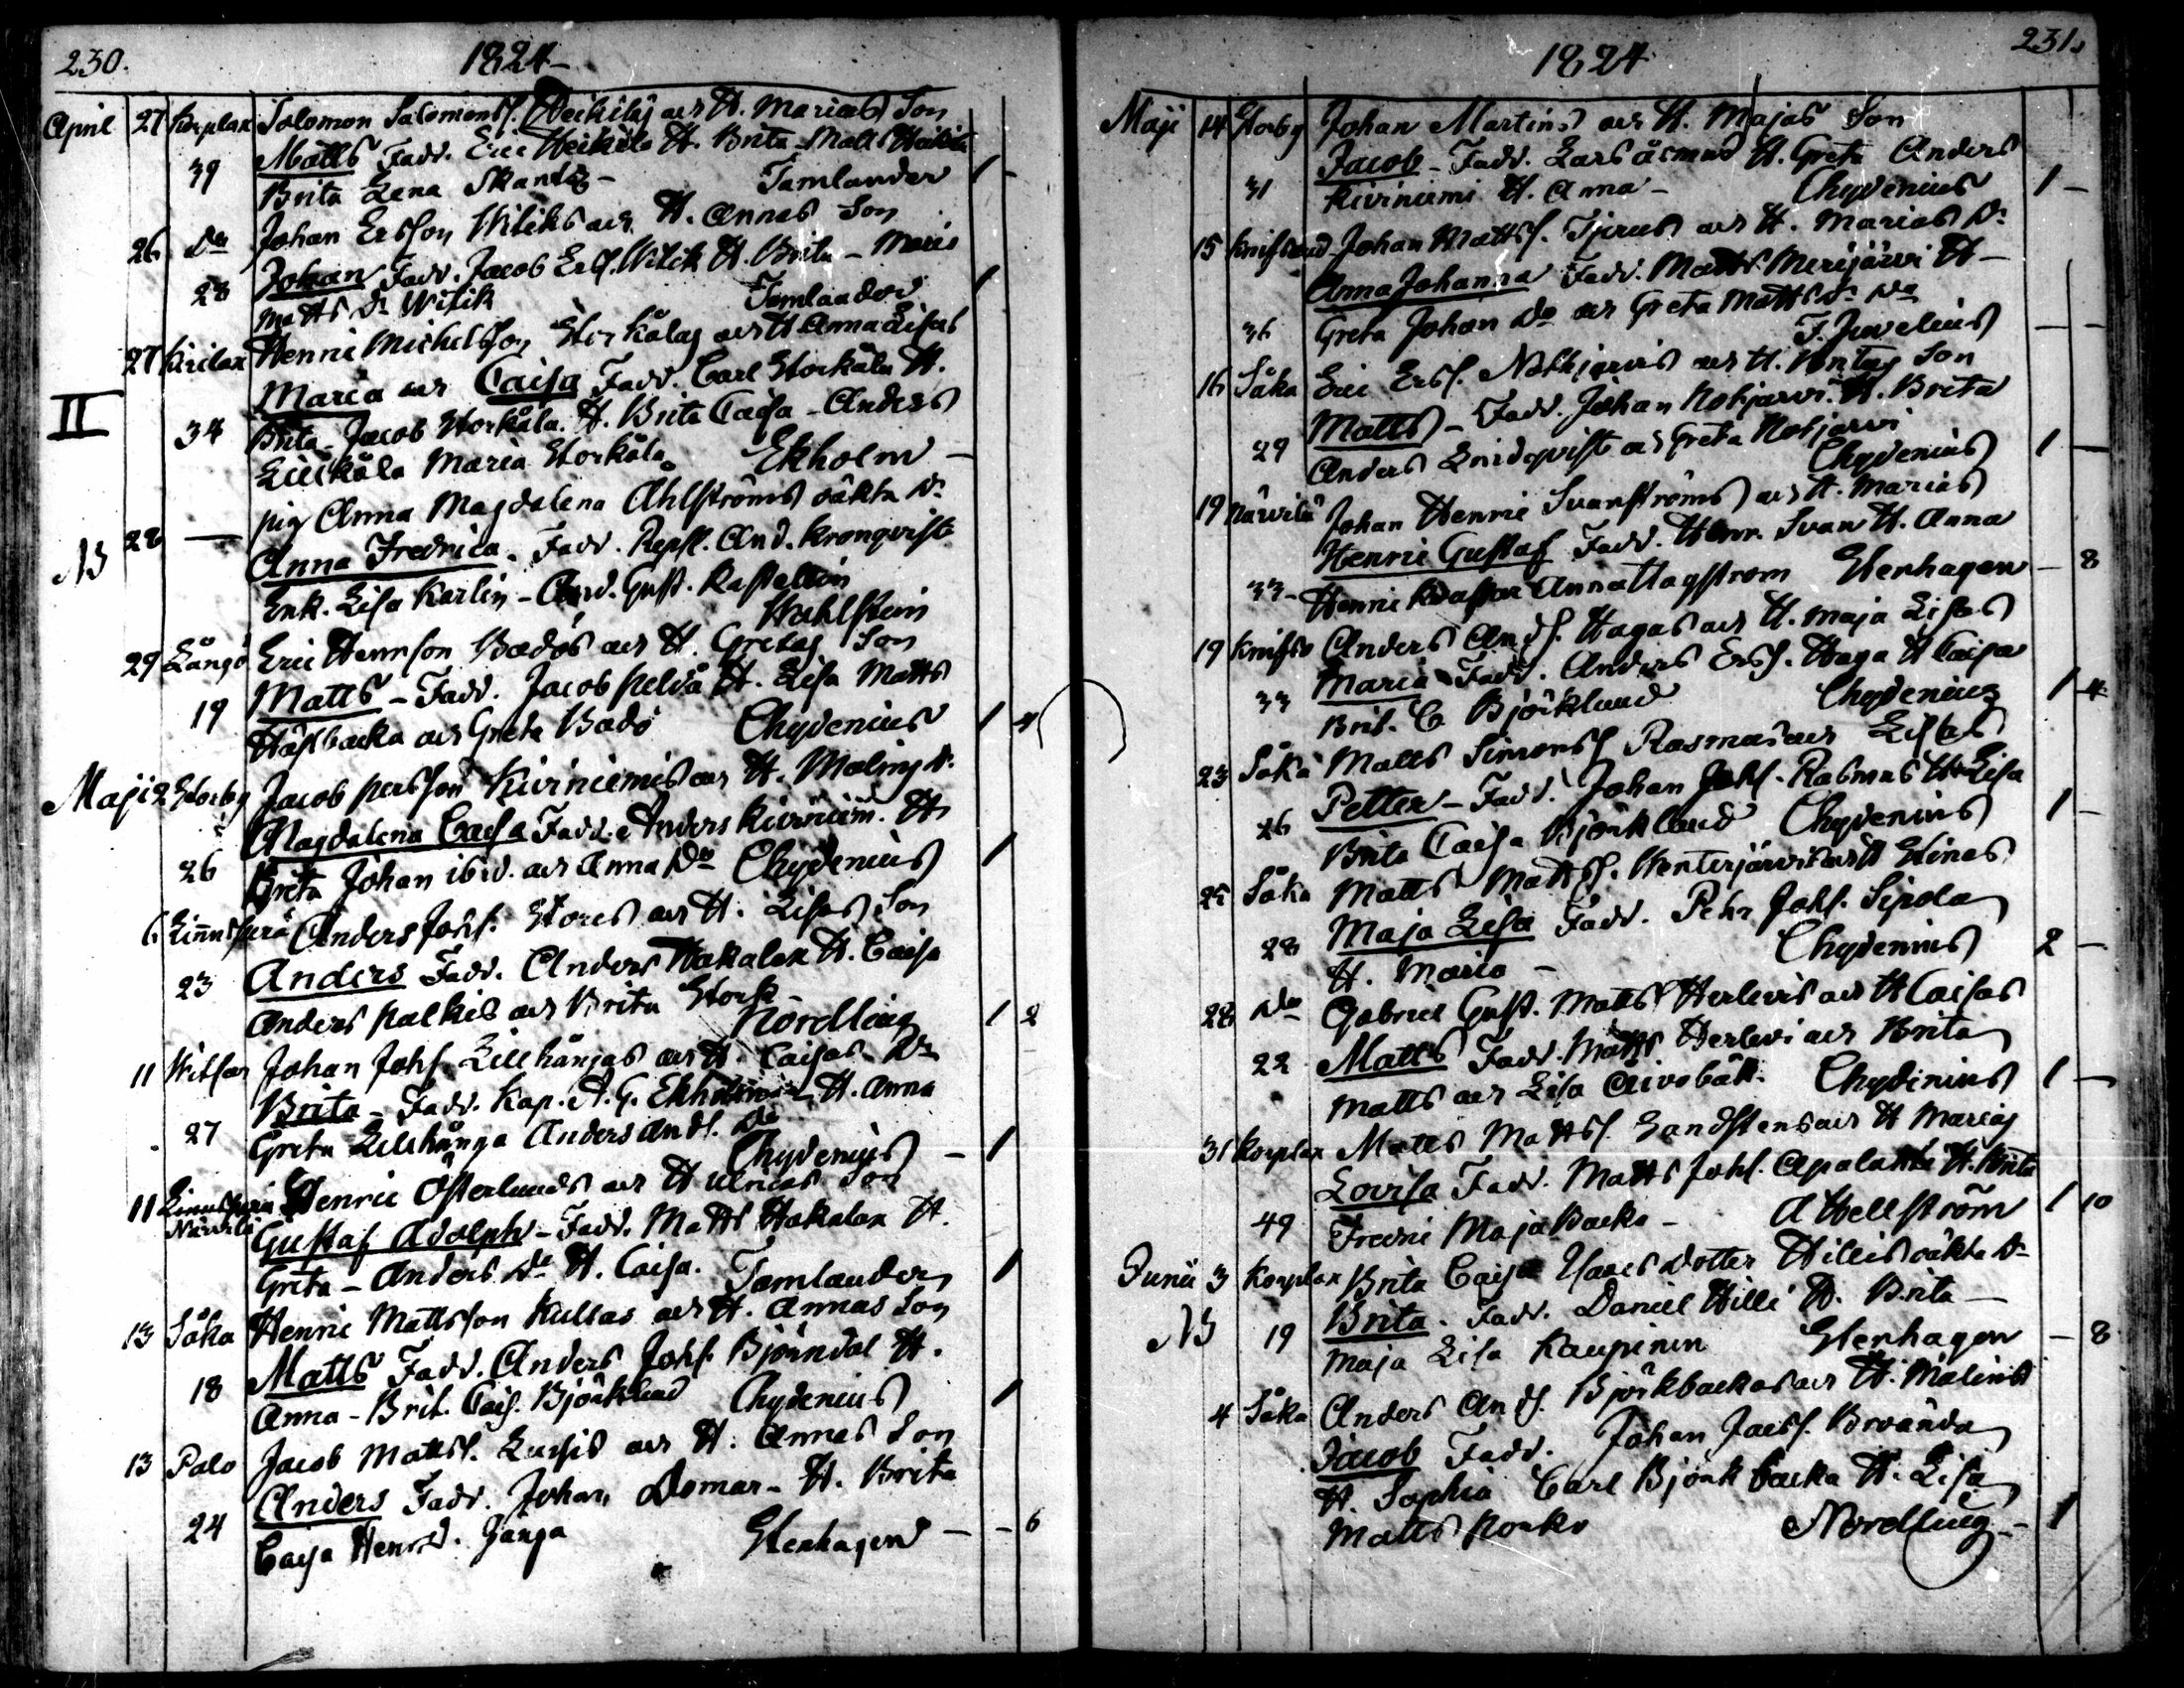 230.
1824
April 27 Korplax Salomon Salomonss. Heikiläs och H. Marias Son
39 Matts Fadd. Eric Heikilä H. Brita Matts Heikilä
Brita Lena Skantz - Tamlander 1 -
26 Do Johan Ersson Witiks och H. Annas Son
28 Johan Fadd. Jacob Erss. Witik H. Brita - Maria
Matts Dr Witik Tamlander 1
27 Kirilax Henric Michelsson Storkålas och H Anna Lisas
II Maria och Caisa Fadd. Carl Storkåla H.
34 Brita - Jacob Storkåla. H. Brita Caisa - Anders
Lillkåla Maria Storkåla Ekholm -
28 — pig Anna Magdalena Ahlströms oäkta Dr
N3 Anna Fredrica. Fadd. Repsl. And. Kronqvist
Enk. Lisa Karlin - And. Gust. Kastellin
Wahlstein
29 Långö Eric Hennson Bodös och H. Gretas Son
19 Matts - Fadd. Jacob Pelda H. Lisa Matts
Häslbacka och Greta Bodö Chydenius 1 4
Maji 2 Storby Jacob Persson Kiviniemis och H. Malins Dr
26 Magdalena Caisa Fadd. Anders Kiviniem. H
Greta Johan ibid. och Anna Do Chydenius 1
6 Linnusperä Anders Johs. Stores och H. Lisas Son
23 Anders Fadd. Anders Hakalax H. Caisa
Anders Palkis och Brita Stork Nordling 1 2
11 Witsar Johan Johs. Lillhångas och H. Caisas Dr
27 Brita - Fadd. Kap. A. G. Ekholm H. Anna
Greta Lillhånga Anders Ands. Do
Chydenius - 1
11 Linnusperä Henric Österlunds och H Ulricas Son
Närvilä Gustaf Adolph - Fadd. Matts Hakalax H.
Greta - Anders Do H. Caisa. Tamlander 1
13 Såka Henric Mattsson Kullas och H. Annas Son
18 Matts Fadd. Anders Johs. Björndal H.
Anna - Brit. Cais. Björklund Chydenius 1
13 Palo Jacob Mattss. Lussis och H. Annas Son
24 Anders Fadd. Johan Domar - H. Brita
Caisa Henrsd. Gånga Stenhagen - - 6
231.
1824
Maji 14 Storby Johan Martins och H. Majas Son
Jacob - Fadd. Lars Åsmus H. Greta Anders
31 Kiviniemi H. Anna - Chydenius 1 -
15 Knifsund Johan Mattss. Tjirus och H. Marias Dr
Anna Johanna Fadd. Matts Merijärvi H -
36 Greta Johan Do och Greta Matts Dr Do
F. Juvelius - -
16 Såka Eric Erss. Notkjervis och H. Britas Son
29 Matts - Fadd. Johan Nokjarvi. H. Brita
Anders Lindqvist och Greta Nokjarvi
Chydenius 1 -
19 Närvilä Johan Henric Svanströms och H. Marias
Henric Gustaf Fadd. Henr. Svan H. Anna
33 - Henric Anna Hagström Stenhagen - 8
19 Knifsv Anders Ands. Hagas och H. Maja Lisas
33 Maria Fadd. Anders Erss. Haga H Caisa
Brit. C Björklund Chydenius 1 4
23 Såka Matts Simonss Rasmas och Lisas
26 Petter - Fadd. Johan Johs. Rasmus H Lisa
Brita Caisa Björklund Chydenius 1 -
25 Såka Matts Mattss. Wenterjärvis och H Stinas
28 Maja Lisa Fadd. Pehr Johs. Sipola
H. Maria - Chydenius 2 -
28 Do Gabriel Gust. Mattss Herlevis och H Caisas
22 Matts Fadd. Matts Herlevi och Brita
Matts och Lisa Aivobäck. Chydenius 1 -
31 Korplax Matts Mattss. Sandstens och H Marias
Lovisa Fadd. Matts Johs. Apalahti H. Brita
49 Fredric Maja Backa - A Hellström 1 10
Junii 3 Korplax Brita Caisa dotter Hillis oäkta Dr
N3 19 Brita. Fadd. Daniel Hilli H. Brita -
Maja Lisa Kaupinen Stenhagen - 8
4 Såka Anders Ands. Björkbackas och H. Malins
Jacob Fadd. Johan Jacss. Brvända
H. Sophia Carl Björkbacka H. Lisa
Matts Porko Nordling - 1